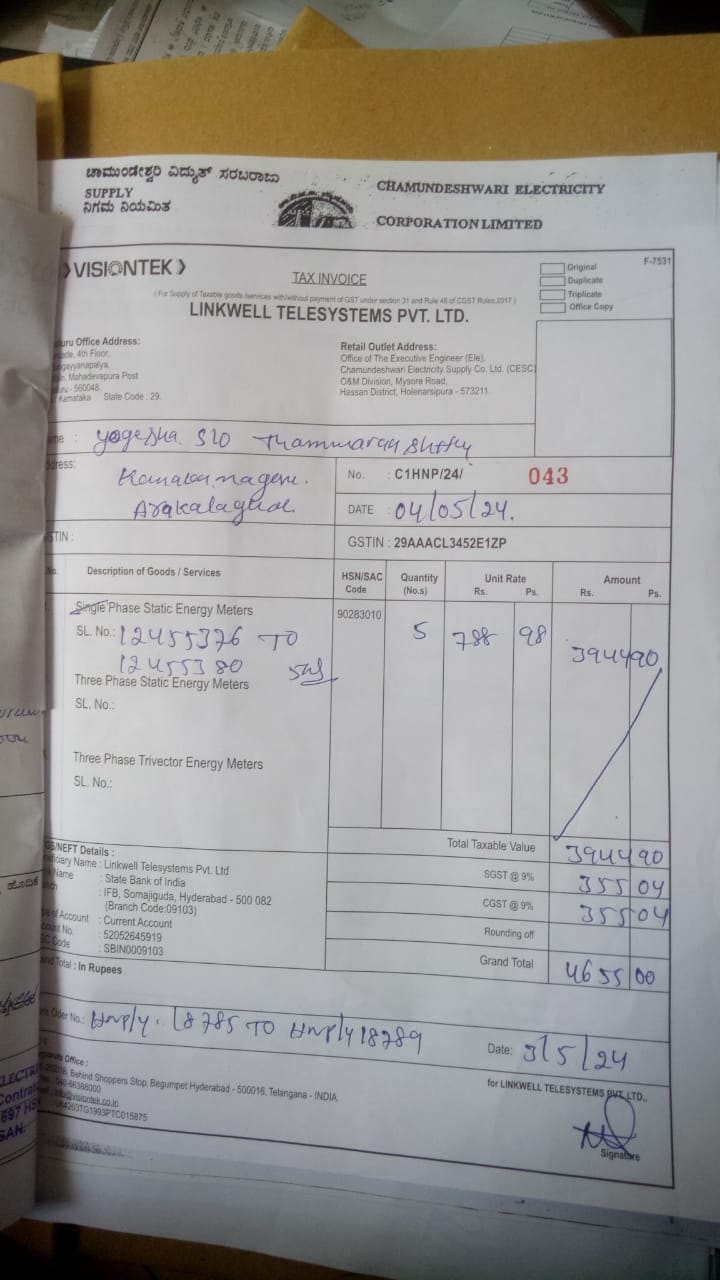 ಚಾಮುಂಡೇಶ್ವರಿ ವಿದ್ಯುತ್ ಸರಬರಾಜು
SUPPLY
ನಿಗಮ ನಿಯಮಿತ
CHAMUNDESHWARI ELECTRICITY
CORPORATION LIMITED
VISIONTEK
TAX INVOICE
F-7531
Original
Duplicate
Triplicate
Office Copy
( For Supply of Taxable goods /services with/without payment of GST under section 31 and Rule 46 of CGST Rules.2017 )
LINKWELL TELESYSTEMS PVT. LTD.
Office Address:
4th Floor,
Mahadevapura Post
- 560048.
Karnataka State Code : 29.
Retail Outlet Address:
Office of The Executive Engineer (Ele),
Chamundeshwari Electricity Supply Co. Ltd. (CESC)
O&M Division, Mysore Road,
Hassan District, Holenarsipura - 573211.
: Yogesha S/O
No. : C1HNP/24/ 043
DATE : 04/05/24.
GSTIN : 29AAACL3452E1ZP
Description of Goods / Services HSN/SAC Code Quantity (No.s) Unit Rate Rs. Ps. Amount Rs. Ps.
Single Phase Static Energy Meters 90283010
SL. No.: 12455376 TO 5 788 98 3944 90
12455380
Three Phase Static Energy Meters
SL. No.:
Three Phase Trivector Energy Meters
SL. No.:
Total Taxable Value 3944 90
SGST @ 9% 355 04
CGST @ 9% 355 04
Rounding off
Grand Total 4655 00
/NEFT Details :
Name : Linkwell Telesystems Pvt. Ltd
Name : State Bank of India
: IFB, Somajiguda, Hyderabad - 500 082
(Branch Code:09103)
of Account : Current Account
No. : 52052645919
Code : SBIN0009103
Total : In Rupees
Oder No.: HNPly. 18785 TO HNPly 18789
Date: 3/5/24
Office :
Behind Shoppers Stop, Begumpet Hyderabad - 500016. Telangana - INDIA
040-66388000
info@visiontek.co.in
for LINKWELL TELESYSTEMS PVT. LTD.,
Signature